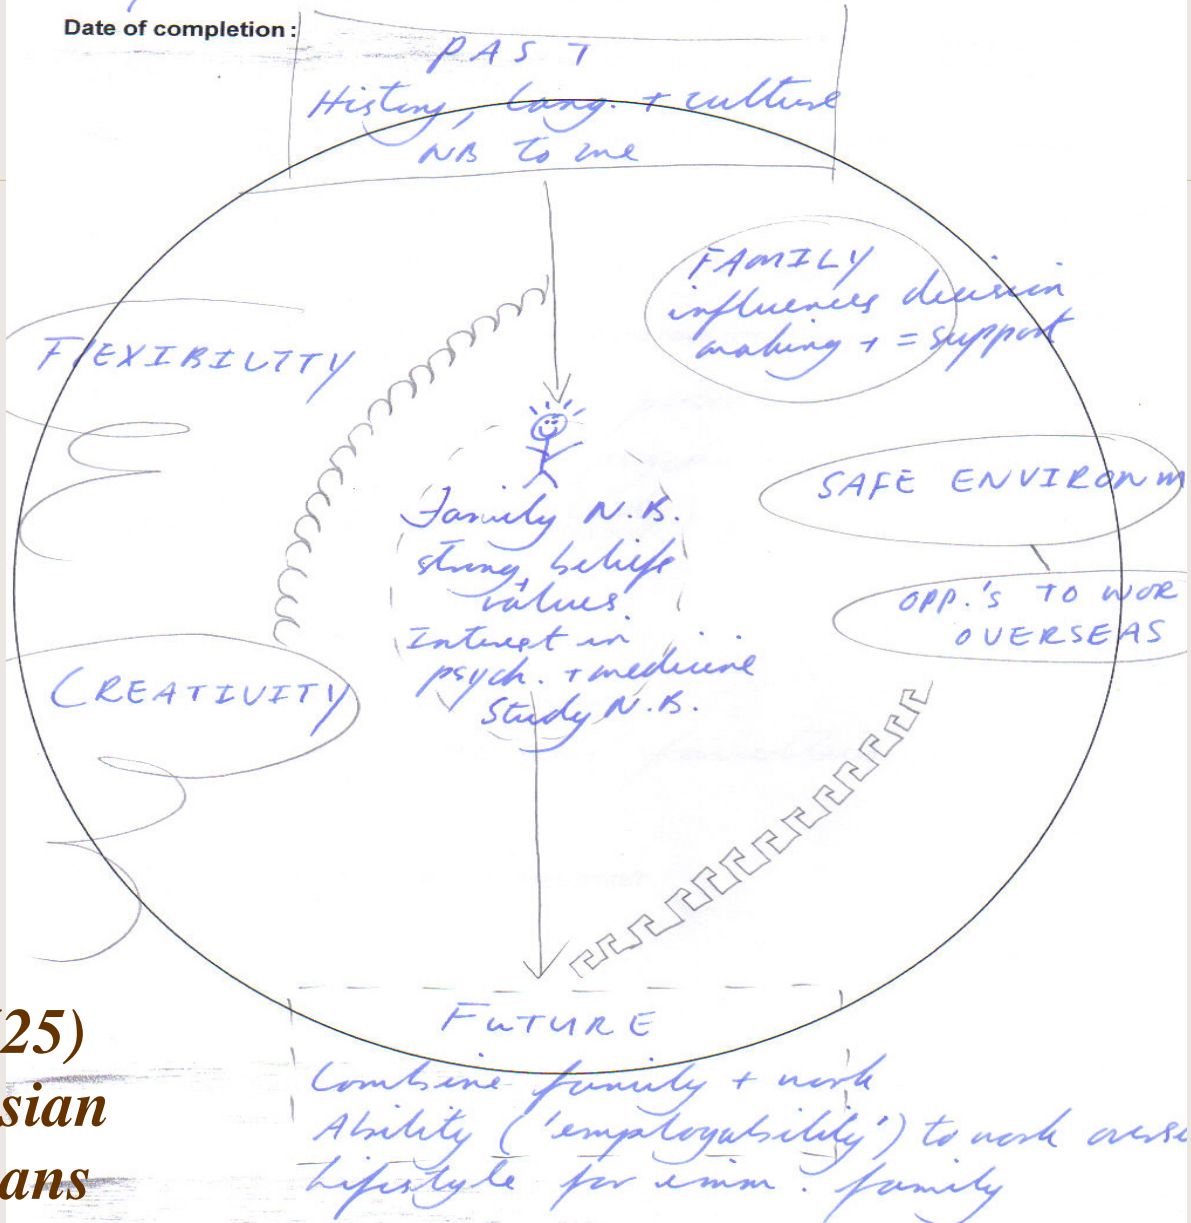 Date of completion :
PAST
History, Lang. + culture
NB to me
FAMILY
influences decision
making + = support
FLEXIBILITY
SAFE ENVIRONM
Family N.B.
strong beliefs
+ values
Interest in
psych. + medicine
Study N.B.
OPP.'S TO WOR
OVERSEAS
CREATIVITY
FUTURE
Combine family + work
Ability ('employability') to work overse
Lifestyle for imm. family
25)
sian
ans